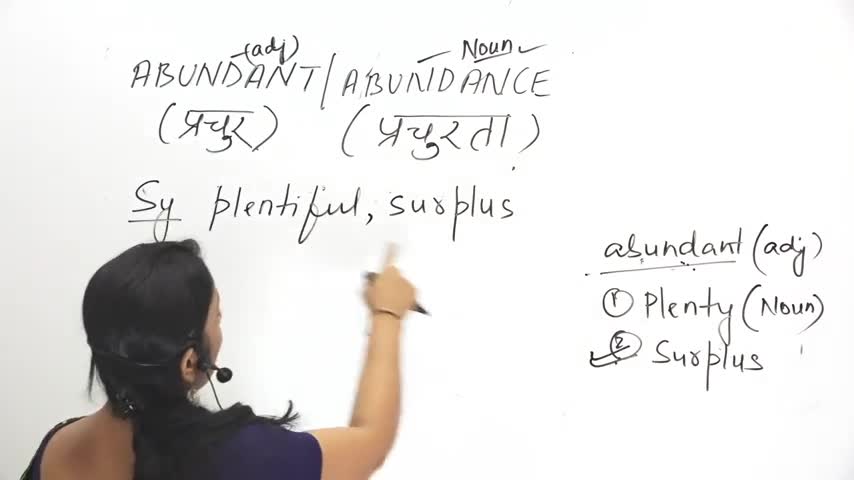 (adj) Noun
ABUNDANT / ABUNDANCE
(प्रचुर) (प्रचुरता)
Sy plentiful, surplus
abundant (adj)
① Plenty (Noun)
② Surplus